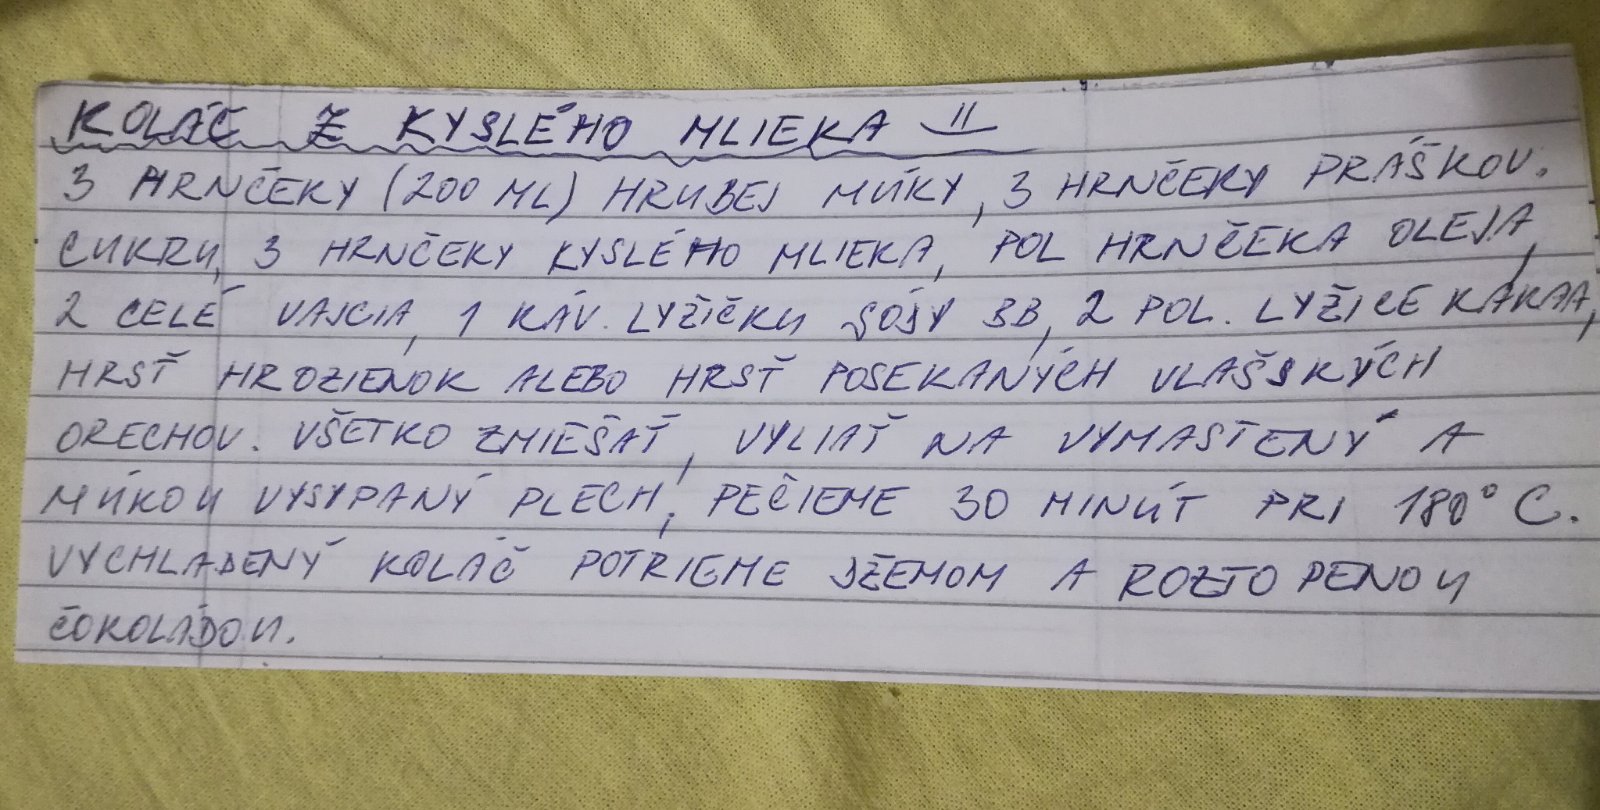 KOLÁČ Z KYSLÉHO MLIEKA II
3 HRNČEKY (200 ML) HRUBEJ MÚKY, 3 HRNČEKY PRÁŠKOV.
CUKRU, 3 HRNČEKY KYSLÉHO MLIEKA, POL HRNČEKA OLEJA,
2 CELÉ VAJCIA, 1 KÁV. LYŽIČKU SÓDY BB, 2 POL. LYŽICE KAKAA,
HRSŤ HROZIENOK ALEBO HRSŤ POSEKANÝCH VLAŠSKÝCH
ORECHOV. VŠETKO ZMIEŠAŤ, VYLIAŤ NA VYMASTENÝ A
MÚKOU VYSYPANÝ PLECH, PEČIEME 30 MINÚT PRI 180° C.
VYCHLADENÝ KOLÁČ POTRIEME DŽEMOM A ROZTOPENOU
ČOKOLÁDOU.